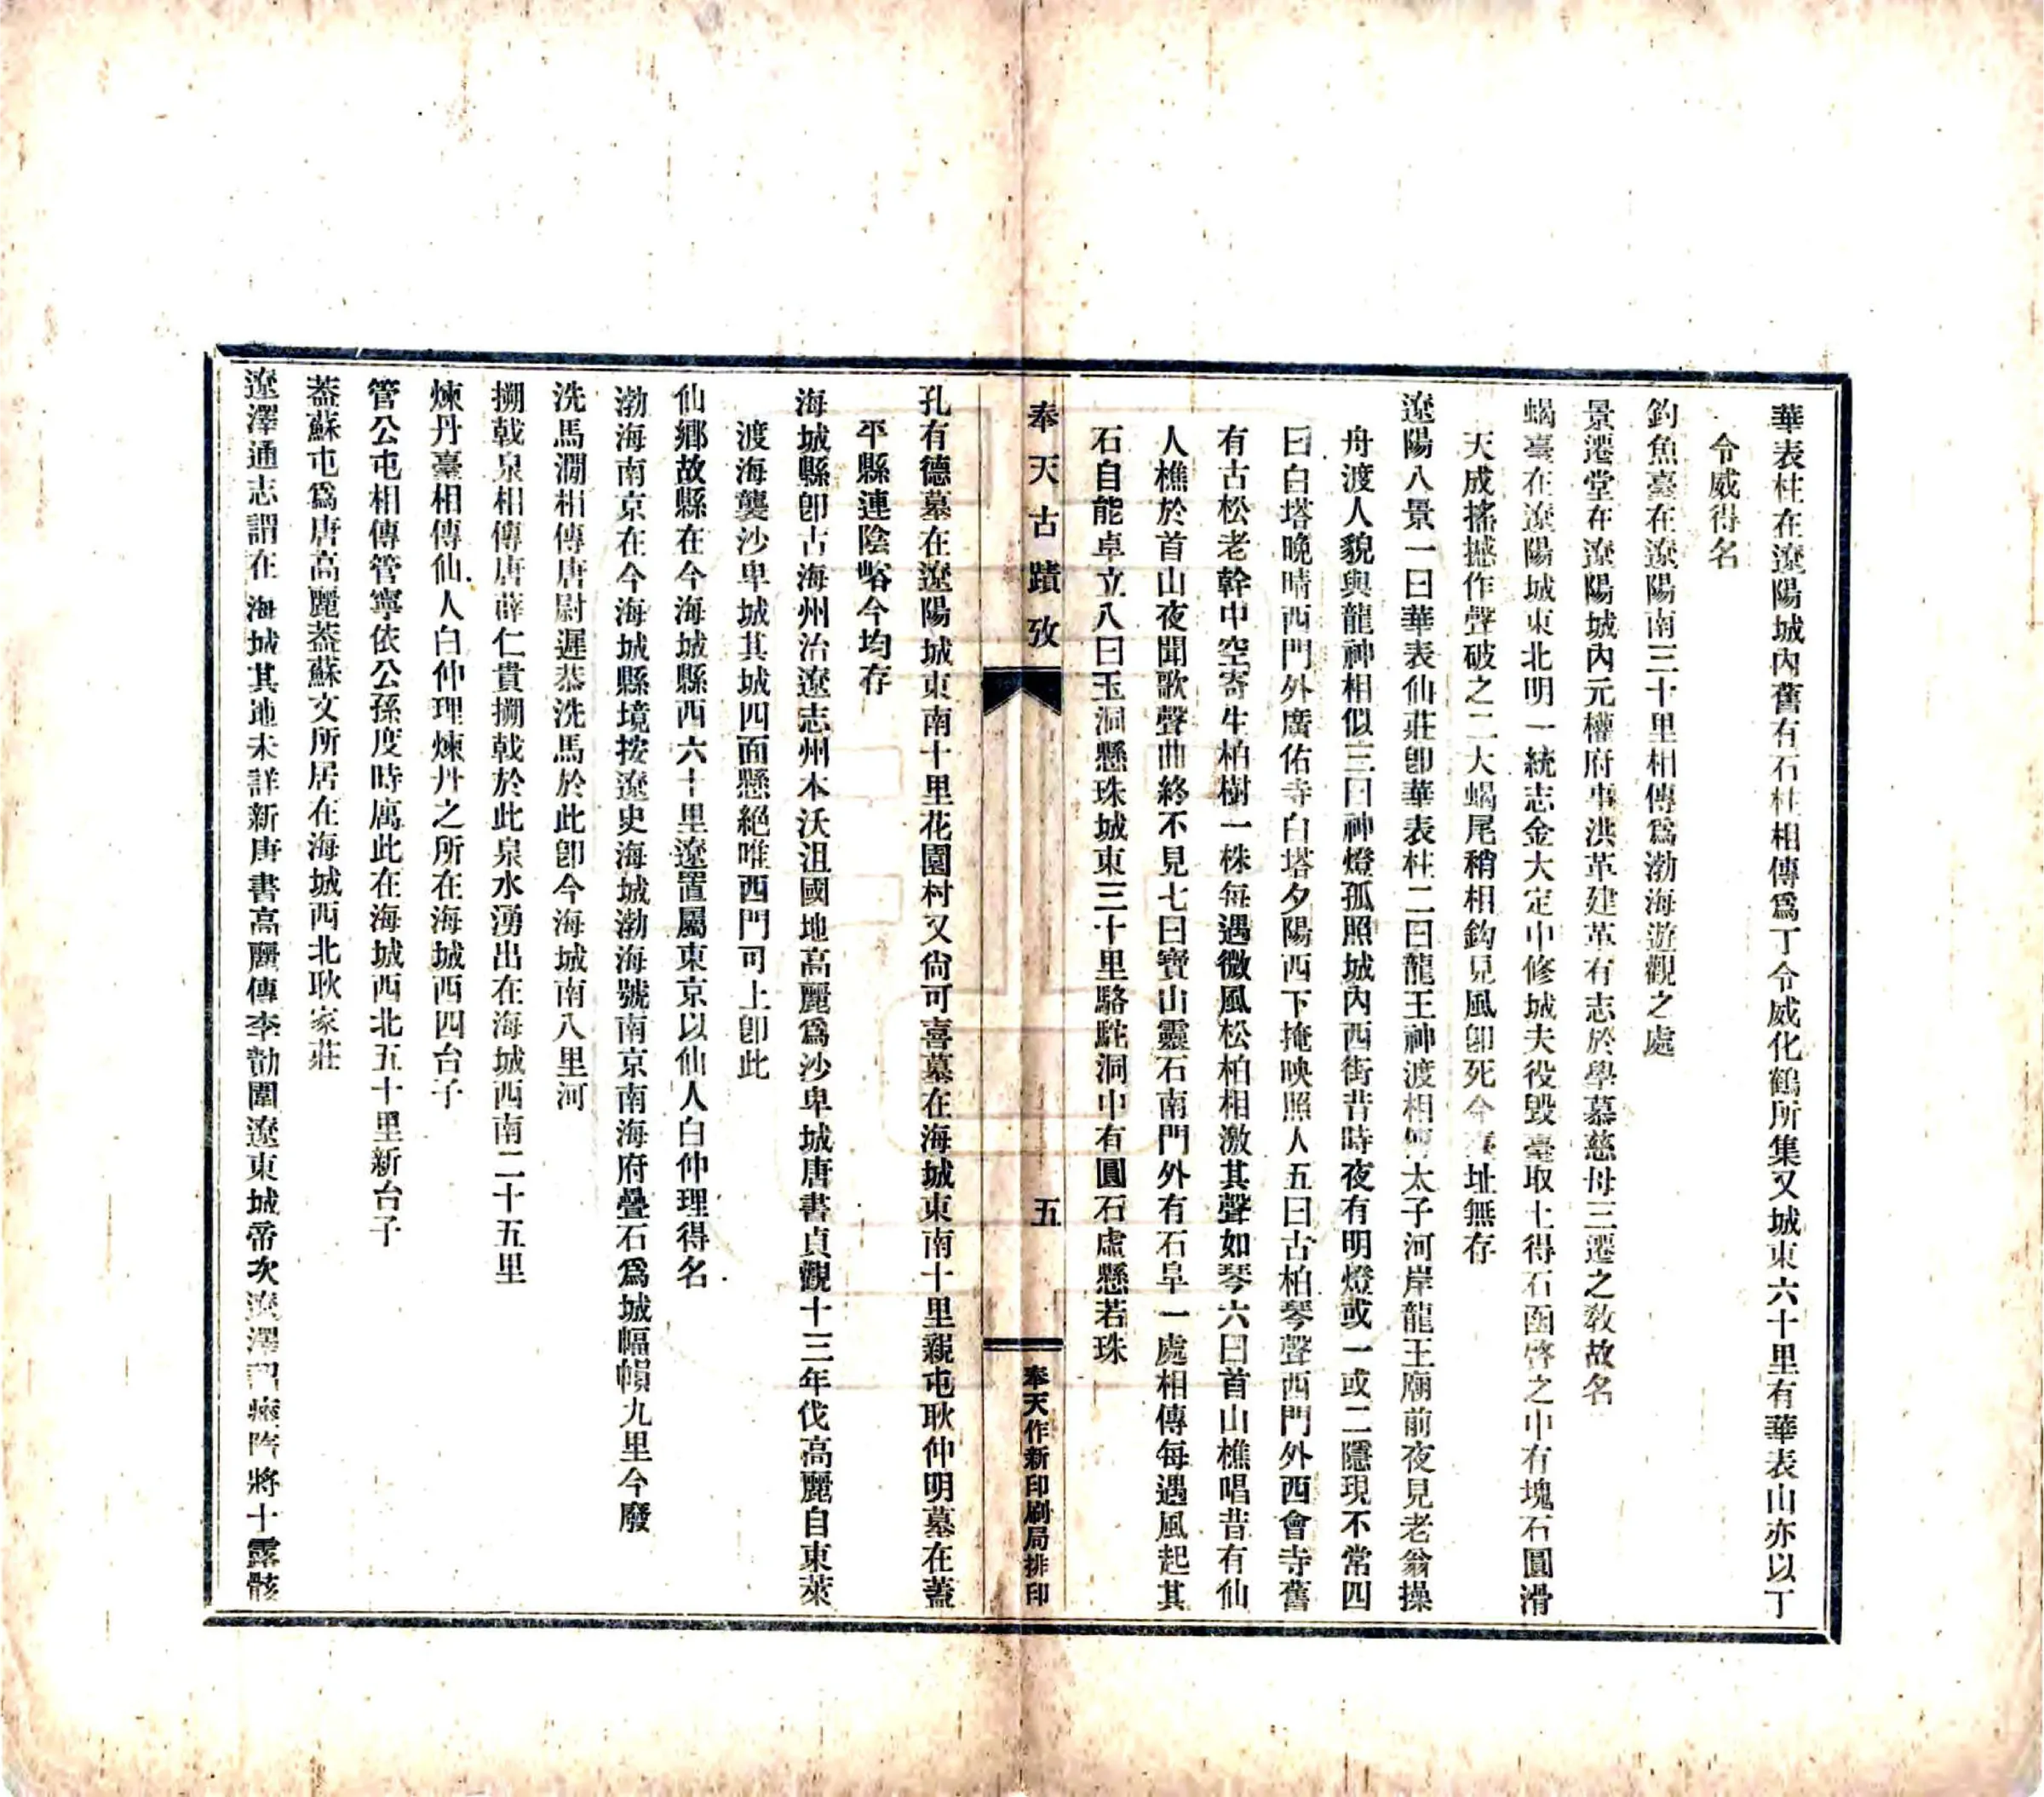 華表柱在遼陽城內舊有石柱相傳爲丁令威化鶴所集又城東六十里有華表山亦以丁
令威得名
釣魚臺在遼陽南三十里相傳爲渤海遊觀之處
景遷堂在遼陽城內元權府事洪革建革有志於學慕慈母三遷之敎故名
蝎臺在遼陽城東北明一統志金大定中修城夫役毀臺取土得石函啓之中有塊石圓滑
天成搖撼作聲破之二大蝎尾稍相鈎見風卽死今臺址無存
遼陽八景一曰華表仙莊卽華表柱二曰龍王神渡相傳太子河岸龍王廟前夜見老翁操
舟渡人貌與龍神相似三曰神燈孤照城內西街昔時夜有明燈或一或二隱現不常四
曰白塔晚晴西門外廣佑寺白塔夕陽西下掩映照人五曰古柏琴聲西門外西會寺舊
有古松老幹中空寄生柏樹一株每遇微風松柏相激其聲如琴六曰首山樵唱昔有仙
人樵於首山夜聞歌聲曲終不見七曰寶山靈石南門外有石阜一處相傳每遇風起其
石自能卓立八曰玉洞懸珠城東三十里駱駝洞中有圓石虛懸若珠
奉天古蹟攷
五
奉天作新印刷局排印
孔有德墓在遼陽城東南十里花園村又尙可喜墓在海城東南十里親屯耿仲明墓在蓋
平縣連陰峪今均存
海城縣卽古海州治遼志州本沃沮國地高麗爲沙卑城唐書貞觀十三年伐高麗自東萊
渡海襲沙卑城其城四面懸絕唯西門可上卽此
仙鄉故縣在今海城縣西六十里遼置屬東京以仙人白仲理得名
渤海南京在今海城縣境按遼史海城渤海號南京南海府疊石爲城幅幀九里今廢
洗馬澗相傳唐尉遲恭洗馬於此卽今海城南八里河
搠戟泉相傳唐薛仁貴搠戟於此泉水湧出在海城西南二十五里
煉丹臺相傳仙人白仲理煉丹之所在海城西四台子
管公屯相傳管寧依公孫度時寓此在海城西北五十里新台子
蓋蘇屯爲唐高麗蓋蘇文所居在海城西北耿家莊
遼澤通志謂在海城其地未詳新唐書高麗傳李勣圍遼東城帝次遼澤詔瘞隋將士露骸